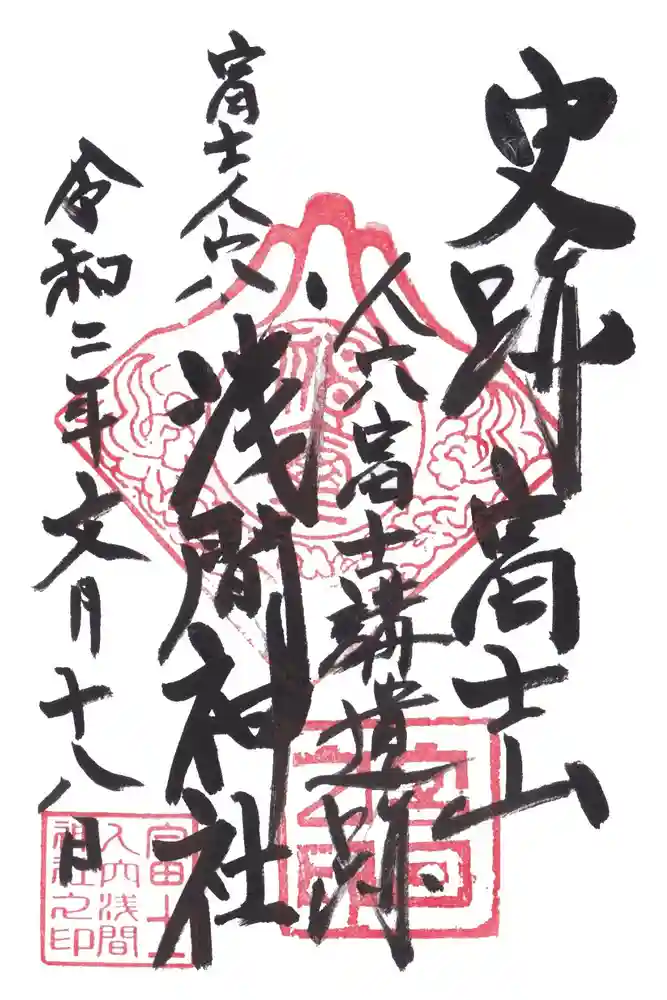 史跡富士山
人穴富士講遺跡
富士人穴
浅間神社
令和二年文月十八日
富士山
人穴浅間
神社之印